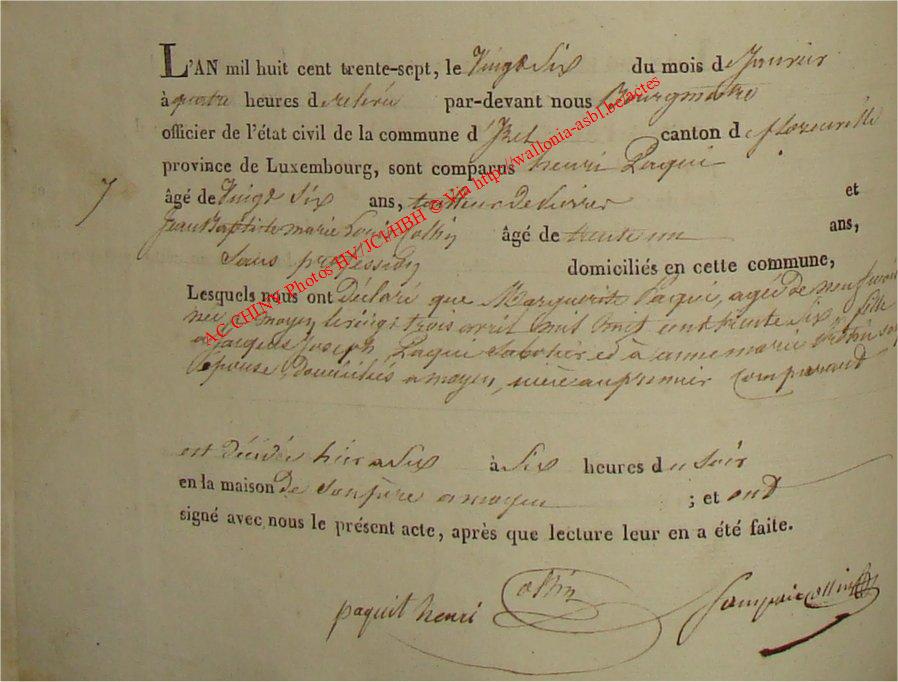 L'AN mil huit cent trente-sept, le Vingt Six du mois de Janvier
à quatre heures de relevée par-devant nous Bourgmestre
officier de l'état civil de la commune d'Izel canton de florenville
province de Luxembourg, sont comparus henri Paquit
7 âgé de Vingt Six ans, et
Jean Baptiste marie Louis Collin âgé de trente un ans,
Sans profession domiciliés en cette commune,
Lesquels nous ont Déclaré que Marguerite Paquit, agée de neuf mois
née a moyen, le vingt trois avril mil huit cent trente Six, fille
a jacques Joseph Paquit Sabotier et à anne marie son
épouse, domiciliés a moyen, nièce au premier comparant
est décédée hier a Six à Six heures du Soir
en la maison de Son père a moyen ; et ont
signé avec nous le présent acte, après que lecture leur en a été faite.
paquit henri Collin Collin
AC CHINY Photos HV/JCVHBH © Via http://wallonia-asbl.be/actes